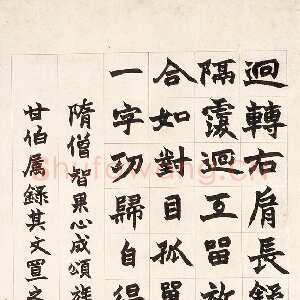 迴轉右肩長
隔覆迴互留放
合如對目孤單
一字功歸自得
隋僧智果心成頌
甘伯属錄其文置之